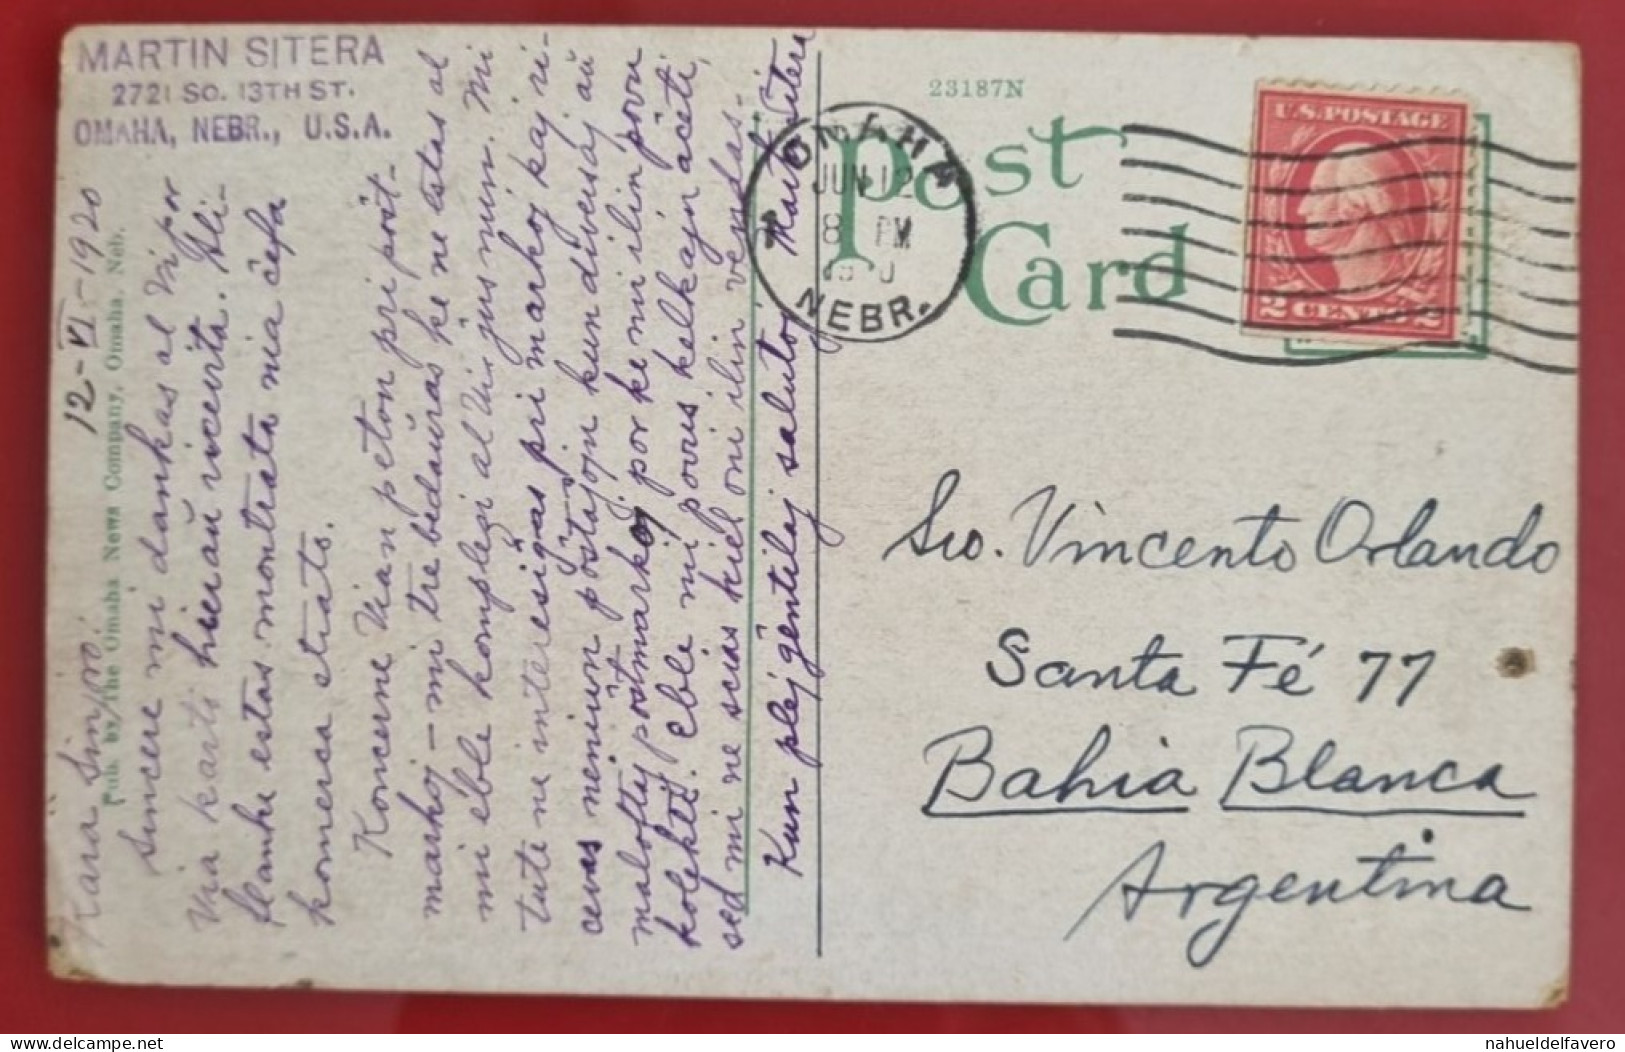 MARTIN SITERA
2721 SO. 13TH ST.
OMAHA, NEBR., U.S.A.
12-VI-1920
Kara Sinjoro:
Sincere mi dankas al Vi por
Via karto hieraŭ ricevita. Ali-
flanke estas montrata nia ĉefa
komerca strato.
Koncerne Vian peton pri poŝt-
markoj - mi tre bedaŭras ke ne estas al
mi eble komplezi al Vi jus nun. Mi
tute ne interesiĝas pri markoj kaj ri-
cevas neniun poŝtaĵojn kun diversaj aŭ
maloftaj poŝtmarkoj por ke mi ilin povu
kolekti. Eble mi povus kelkajn aĉeti,
sed mi ne scias kiel oni ilin vendas.
Kun plej ĝentilaj salutoj, Mart. Sitera
Pub. by the Omaha News Company, Omaha, Neb.
23187N
Post
Card
OMAHA
JUN 12
8 PM
NEBR.
U.S. POSTAGE
2 CENTS 2
Sro. Vincento Orlando
Santa Fé 77
Bahia Blanca
Argentina
delcampe.net
nahueldelfavero